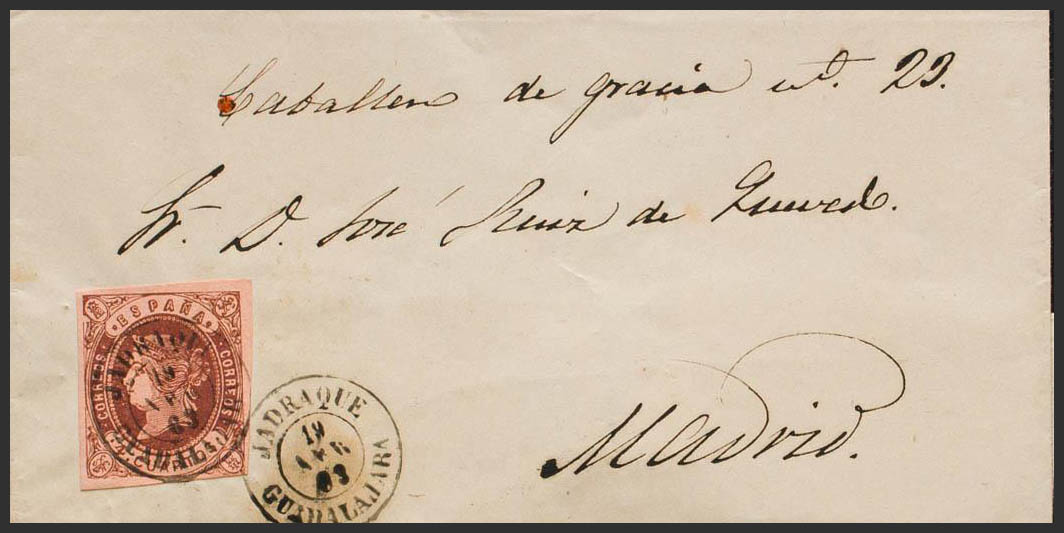 Caballero de gracia nº. 23.
Sr. D. José Ruiz de Quevedo.
Madrid.
ESPAÑA
CORREOS
CORREOS
4 CUARTOS
JADRAQUE
19
63
JADRAQUE
19
63
GUADALAJARA